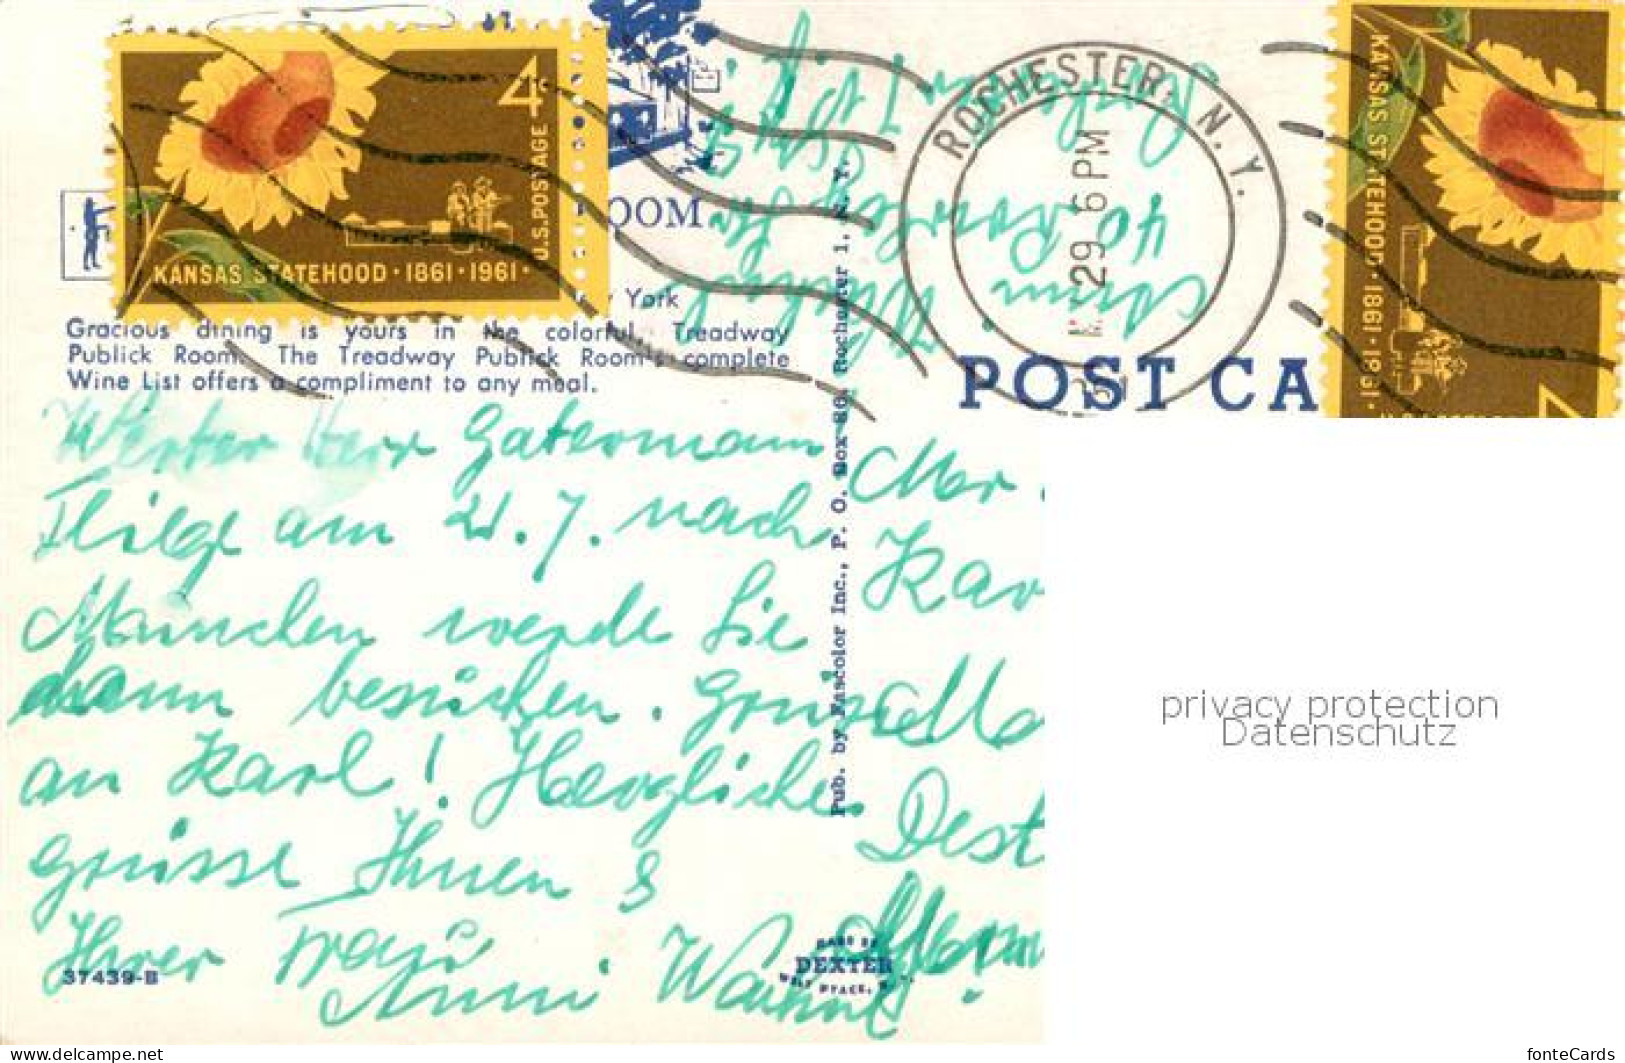 4¢
U.S.POSTAGE
KANSAS STATEHOOD · 1861 · 1961 ·
ROCHESTER, N. Y.
29 6 PM
KANSAS STATEHOOD · 1861 · 1961 ·
OOM
York
Gracious dining is yours in the colorful, Treadway
Publick Room. The Treadway Publick Room's complete
Wine List offers a compliment to any meal.
POST CA
Pub. by Fascolor Inc., P. O. Box 86, Rochester 1, N. Y.
Werter Herr Gatermann
Fliege am 21. 7. nach
München werde Sie
dann besuchen. Grüsse
an Karl! Herzliche
grüsse Ihnen &
Ihrer Frau
Anni
Mr.
Kar
Dest
37439-B
MADE BY
DEXTER
WEST NYACK, N. Y.
privacy protection
Datenschutz
www.delcampe.net
fonteCards